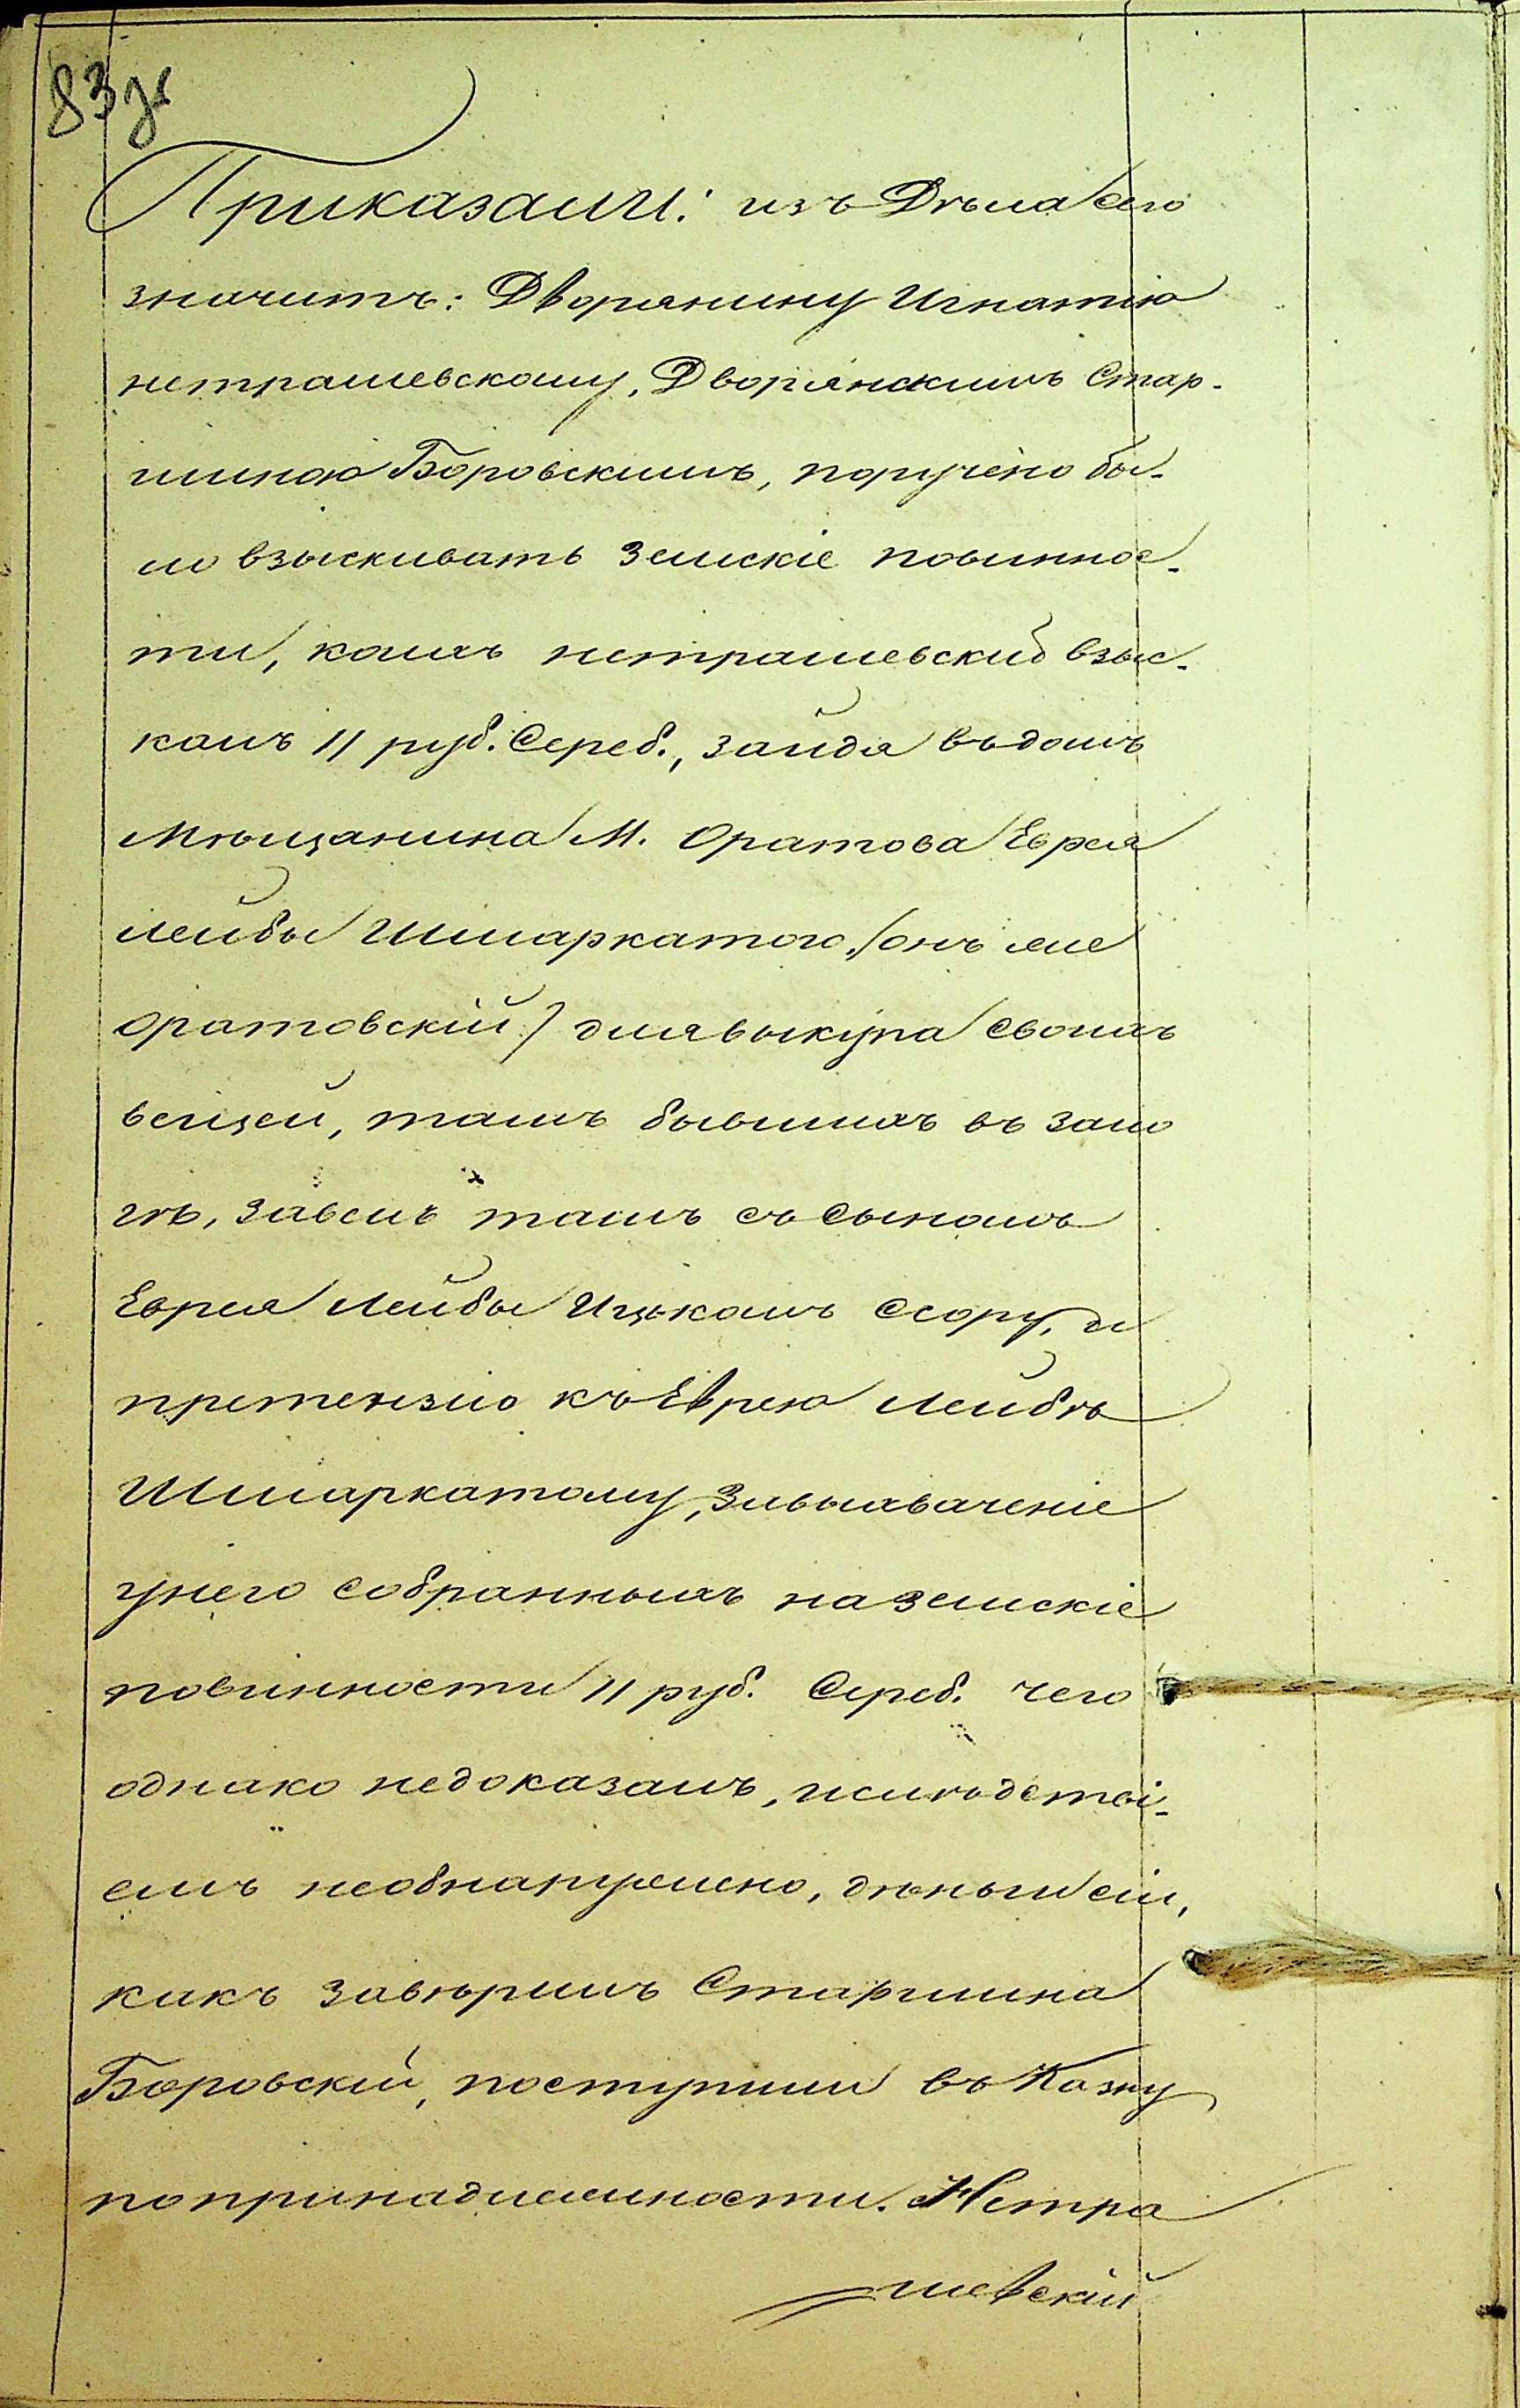 83 зв
Приказали: изъ Дѣла сего
значитъ: Дворянину Игнатію
нетрашевскому, Дворянскимъ Стар-
шиною Боровскимъ, поручено бы-
ло взыскивать Земскіе повиннос-
ти, коихъ нетрашевский взыс-
калъ 11 руб. Сереб., зайдя въ домъ
Мѣщанина М. Оратова Еврея
лейбы Шмаркатого, /онъ же
оратовскій/ для выкупа своихъ
вещей, тамъ бывшихъ въ зало
гѣ, завелъ тамъ съ Сыномъ
Еврея Лейбы Ицькомъ ссору, и
претензію къ Еврею Лейбѣ
Шмаркатому, за выхваченіе
у него собранныхъ на Земскіе
повинности 11 руб. Сереб. чего
однако недоказалъ, ислѣдстві-
емъ необнаружено, дѣньги сіи,
какъ завѣрилъ Старшина
Боровскій, поступили въ Казну
по принадлежности. Нетра
шевскій